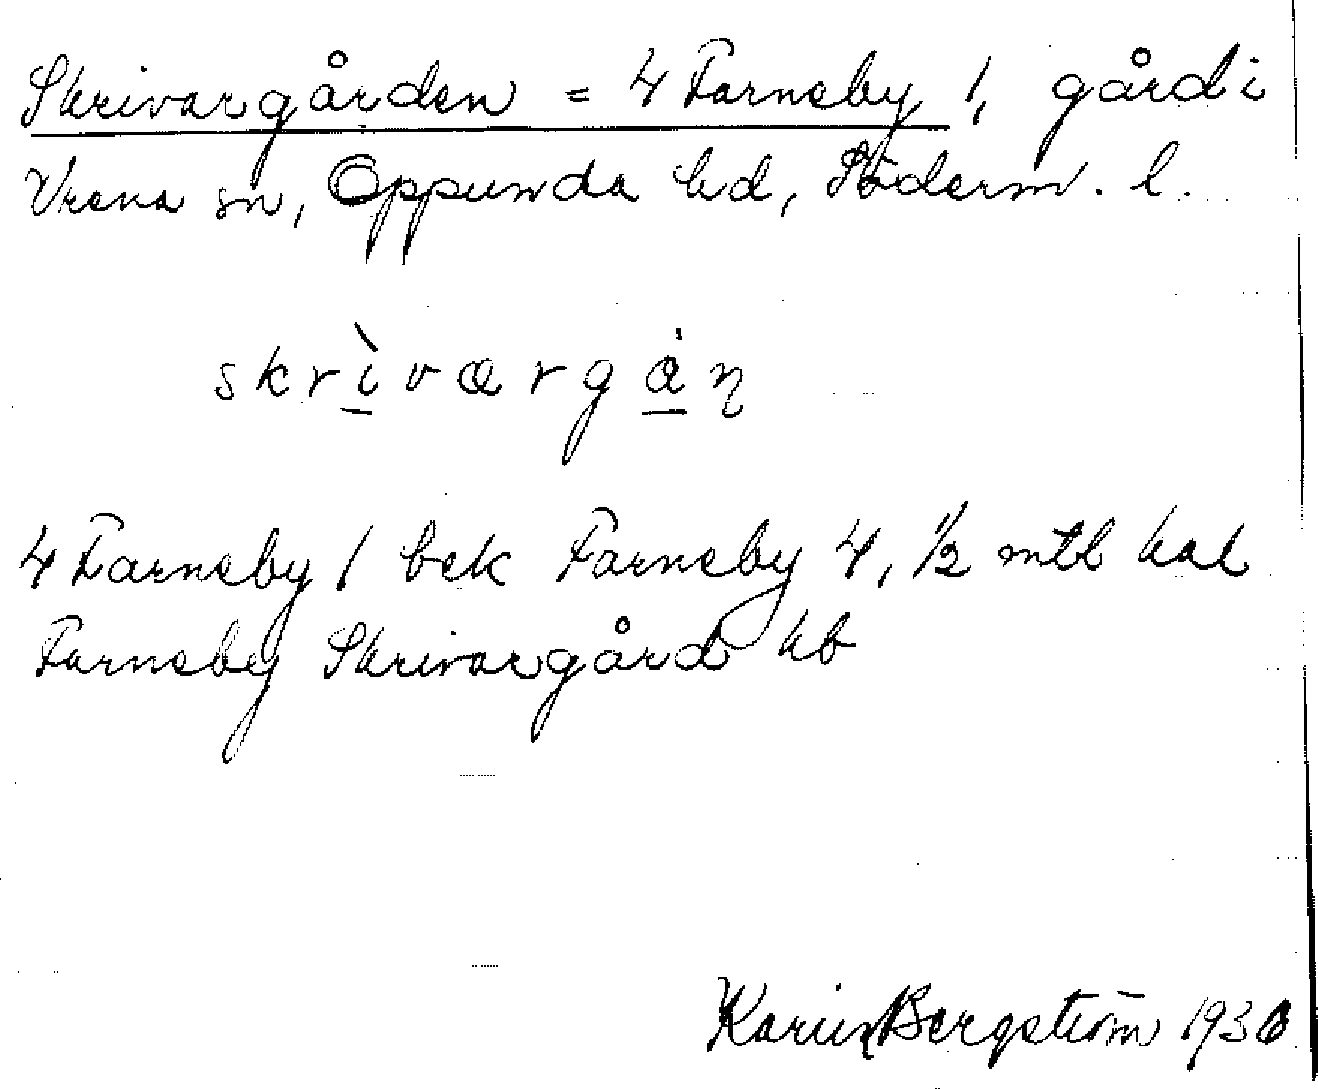 Skrivargården = 4 Farneby 1, gård i
Vrena sn, Oppunda hd, Söderm. l.
skrìvargån
4 Farneby 1 bek Farneby 4, 1/2 mtl hal
Farneby Skrivargård kb
Karin Bergström 1930